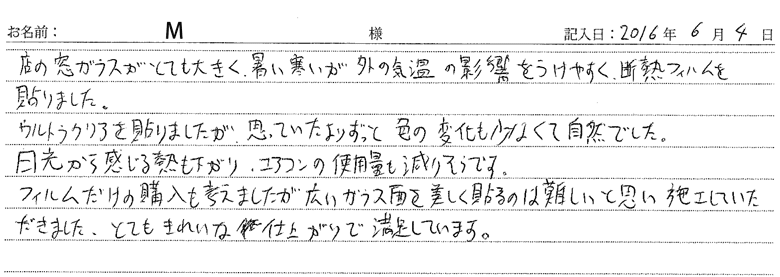 お名前： M 様 記入日：2016年 6月 4日
店の窓ガラスがとても大きく、暑い寒いが外の気温の影響をうけやすく、断熱フィルムを
貼りました。
ウルトラクリアを貼りましたが、思っていたよりずっと色の変化も少なくて自然でした。
日光から感じる熱も下がり、エアコンの使用量も減りそうです。
フィルムだけの購入も考えましたが広いガラス面を美しく貼るのは難しいと思い施工していた
だきました、とてもきれいな仕上がりで満足しています。